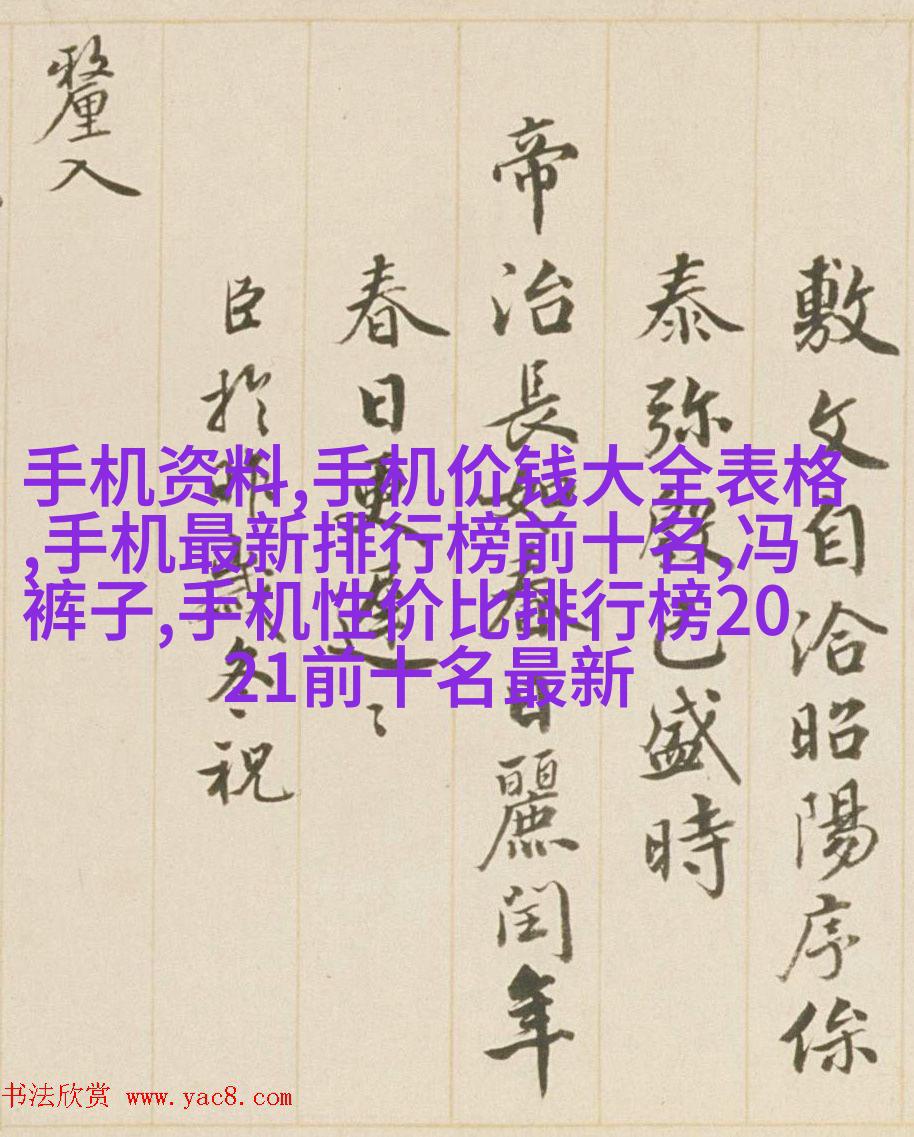 敷文自洽昭陽序俆
泰弥殷巳盛時
帝治長如春日麗閏年
春日更遲〻
臣於
冬〻祝
釐入
手机资料,手机价钱大全表格
,手机最新排行榜前十名,冯
裤子,手机性价比排行榜20
21前十名最新
书法欣赏 www.yac8.com